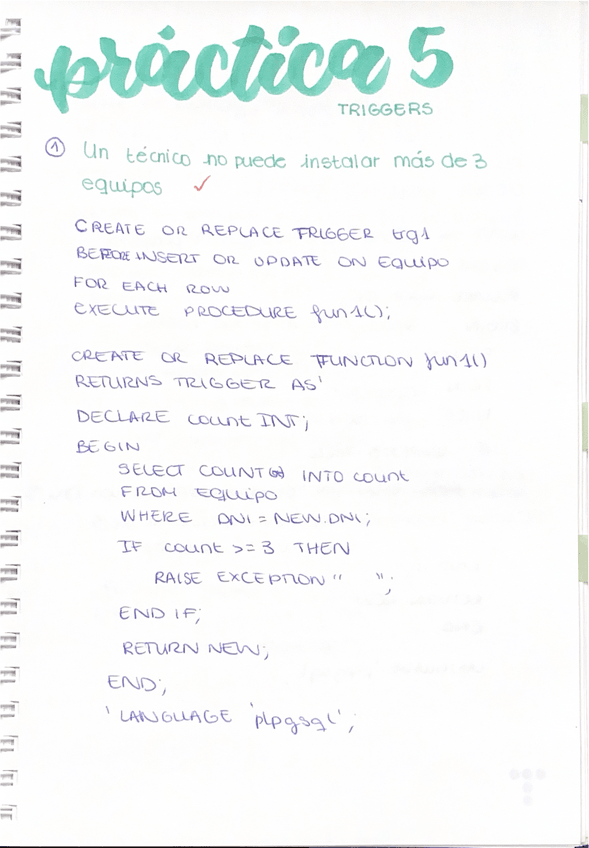 práctica 5
TRIGGERS
① Un técnico no puede instalar más de 3
equipos ✓
CREATE OR REPLACE TRIGGER trg1
BEFORE INSERT OR UPDATE ON EQUIPO
FOR EACH ROW
EXECUTE PROCEDURE fun1();
CREATE OR REPLACE FUNCTION fun1()
RETURNS TRIGGER AS'
DECLARE count INT;
BEGIN
SELECT COUNT(*) INTO count
FROM EQUIPO
WHERE DNI = NEW.DNI;
IF count >= 3 THEN
RAISE EXCEPTION " ";
END IF;
RETURN NEW;
END;
'LANGUAGE 'plpgsql';